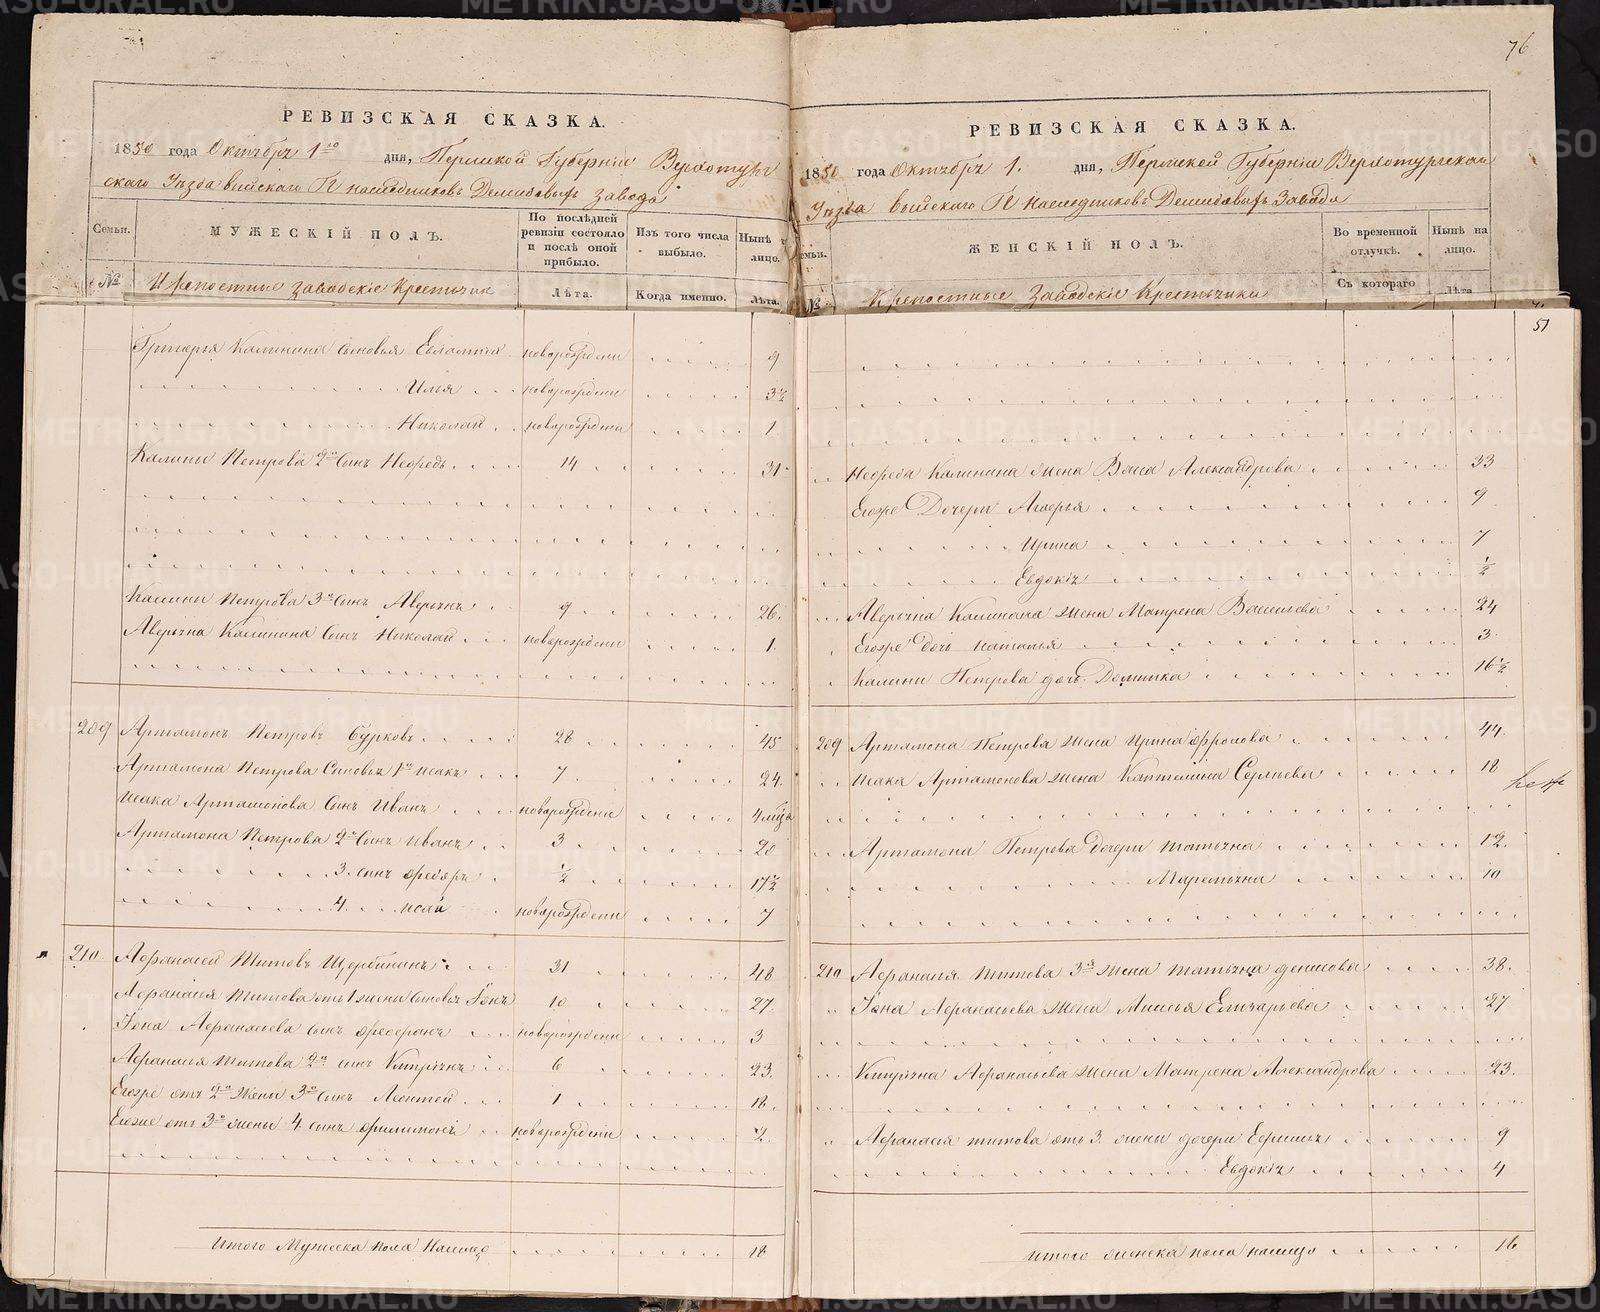 РЕВИЗСКАЯ СКАЗКА.
1850 года Октября 1го дня, Пермской Губернии Верхотур
скаго Уезда Выйскаго Г. наследников Демидовых Завода
Семьи. МУЖЕСКІЙ ПОЛЪ. По послѣдней ревизіи состояло и послѣ оной прибыло. Изъ того числа выбыло. Нынѣ на лицо.
№ Крепостные заводскіе Крестьяне Лѣта. Когда именно. Лѣта.
Григорья Калинина сыновья Евлампій новорожденъ 9
Илья новорожденъ 3½
Николай новорожденъ 1
Калины Петрова 2й сынъ Нефедъ 14 31
Калины Петрова 3й сынъ Аверьянъ 9 26.
Аверьяна Калинина сынъ Николай новорожденъ 1.
209 Артамонъ Петровъ Бурковъ 28 45
Артамона Петрова Сыновья 1й Исакъ 7 24.
Исака Артамонова сынъ Иванъ новорожденъ 4 м-ца
Артамона Петрова 2й сынъ Иванъ 3 20
3. сынъ Федоръ ½ 17½
4. Исай новорожденъ 7
210 Афанасей Титовъ Щербининъ 31 48
Афанасія Титова отъ 1 жены сыновья Іона 10 27.
Іона Афанасьева сынъ Феофанъ новорожденъ 3
Афанасія Титова 2й сынъ Кипріянъ 6 23.
Егоже отъ 2й жены 3й сынъ Леонтей 1 18.
Егоже отъ 3й жены 4 сынъ Филимонъ новорожденъ 2.
Итого Мужеска пола налицо 18
76
РЕВИЗСКАЯ СКАЗКА.
1850 года Октября 1. дня, Пермской Губерніи Верхотурскаго
Уезда Выйскаго Г. наследниковъ Демидовыхъ Завода
Семьи. ЖЕНСКІЙ ПОЛЪ. Во временной отлучкѣ. Нынѣ на лицо.
№ Крепостные Заводскіе Крестьянки Съ котораго Лѣта
51
Нефеда Калинина жена Васса Александрова 33
Егоже Дочери Агафья 9
Ирина 7
Евдокія ½
Аверьяна Калинина жена Матрена Васильева 24
Егоже Дочь Наталья 3
Калины Петрова дочь Домника 16½
209 Артамона Петрова жена Ирина Фролова 44.
Исака Артамонова жена Каптелина Сергиева 18
Артамона Петрова Дочери Татьяна 12.
Маремьяна 10
210 Афанасія Титова 3я жена Татьяна Денисова 38.
Іона Афанасьева жена Елизарьева 27
Кипріяна Афанасьева жена Матрена Александрова 23.
Афанасія Титова отъ 3. жены дочери 9
Евдокія 4
Итого женска пола налицо 16
METRIKI.GASO-URAL.RU